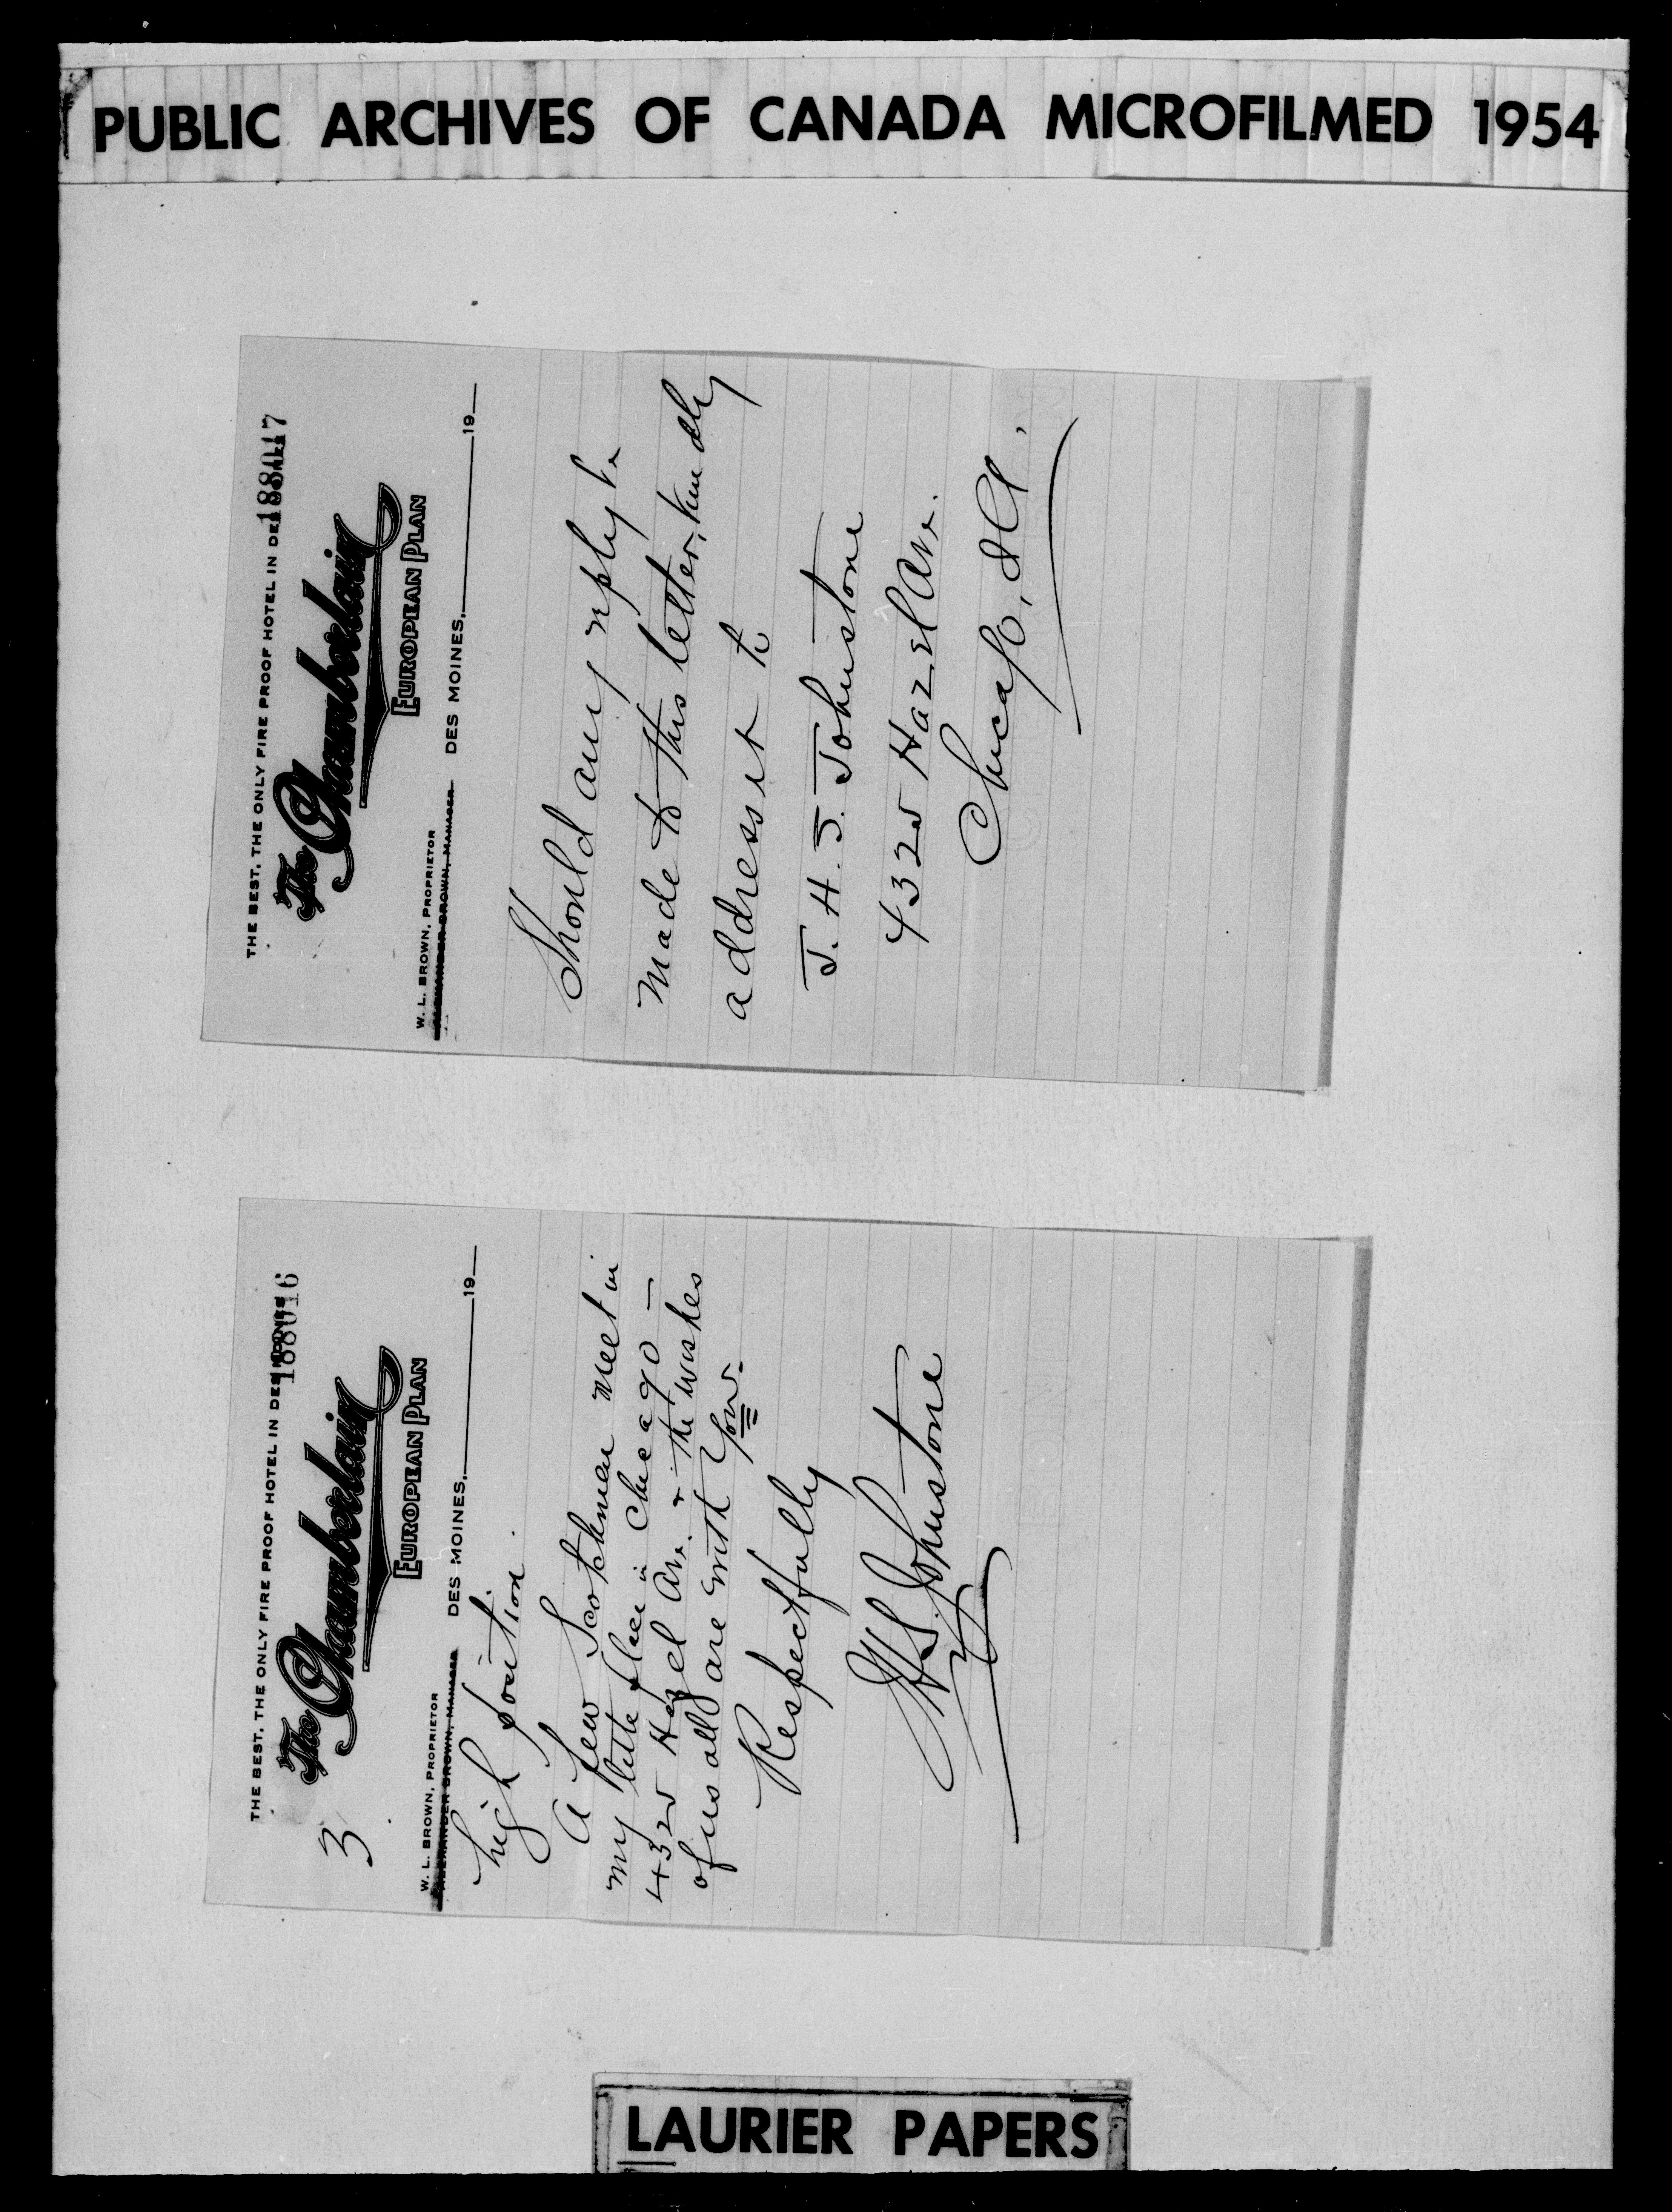 PUBLIC ARCHIVES OF CANADA MICROFILMED 1954
THE BEST, THE ONLY FIRE PROOF HOTEL IN DES MOINES
188016
The Chamberlain
EUROPEAN PLAN
3
W. L. BROWN, PROPRIETOR
ALEXANDER BROWN, MANAGER
DES MOINES, 19
high position.
A few Scotchmen meet in
my little place in Chicago —
432 Hazel Av. & the wishes
of us all are with You.
Respectfully
J H S Johnstone
THE BEST, THE ONLY FIRE PROOF HOTEL IN DES MOINES
188017
The Chamberlain
EUROPEAN PLAN
W. L. BROWN, PROPRIETOR
ALEXANDER BROWN, MANAGER
DES MOINES, 19
Should any reply be
made to this letter, kindly
address it to
J. H. S. Johnstone
432 Hazel Av.
Chicago, Ill.
LAURIER PAPERS